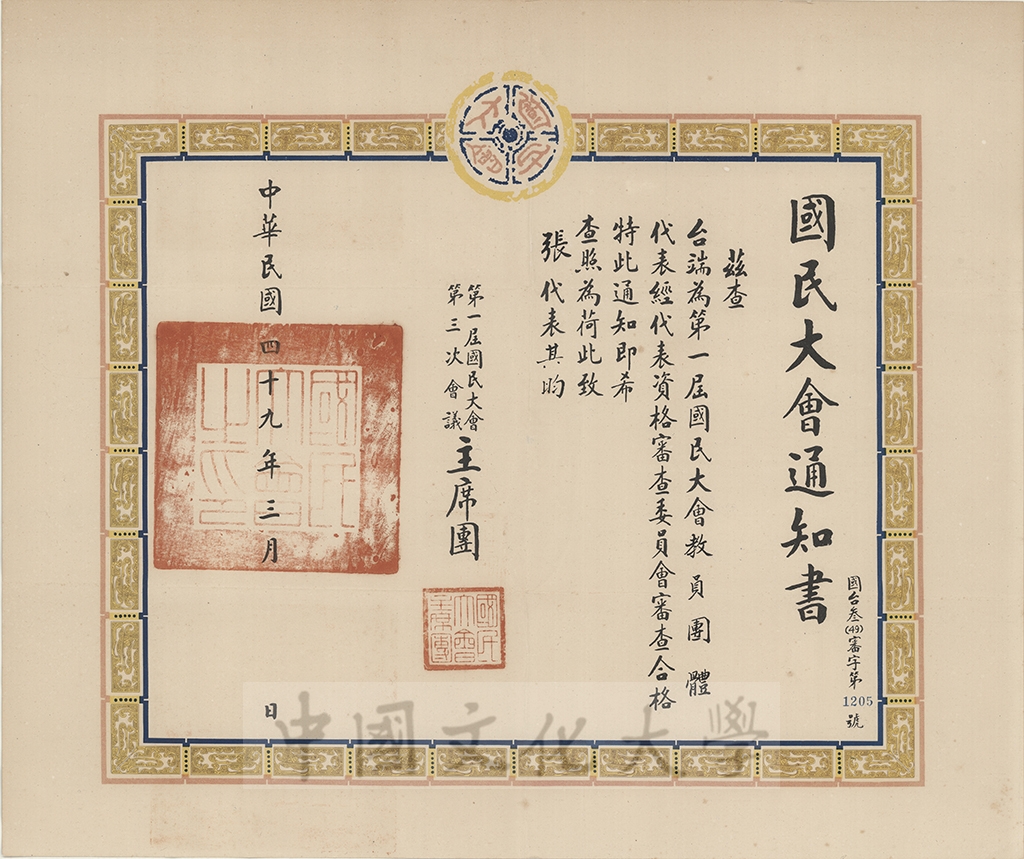 國民大會通知書
國台叁(49)審字第1205號
茲查
台端為第一屆國民大會教員團體
代表經代表資格審查委員會審查合格
特此通知即希
查照為荷此致
張代表其昀
第一屆國民大會
第三次會議
主席團
國民大會主席團
中華民國四十九年三月 日
國民大會之印
中國文化大學